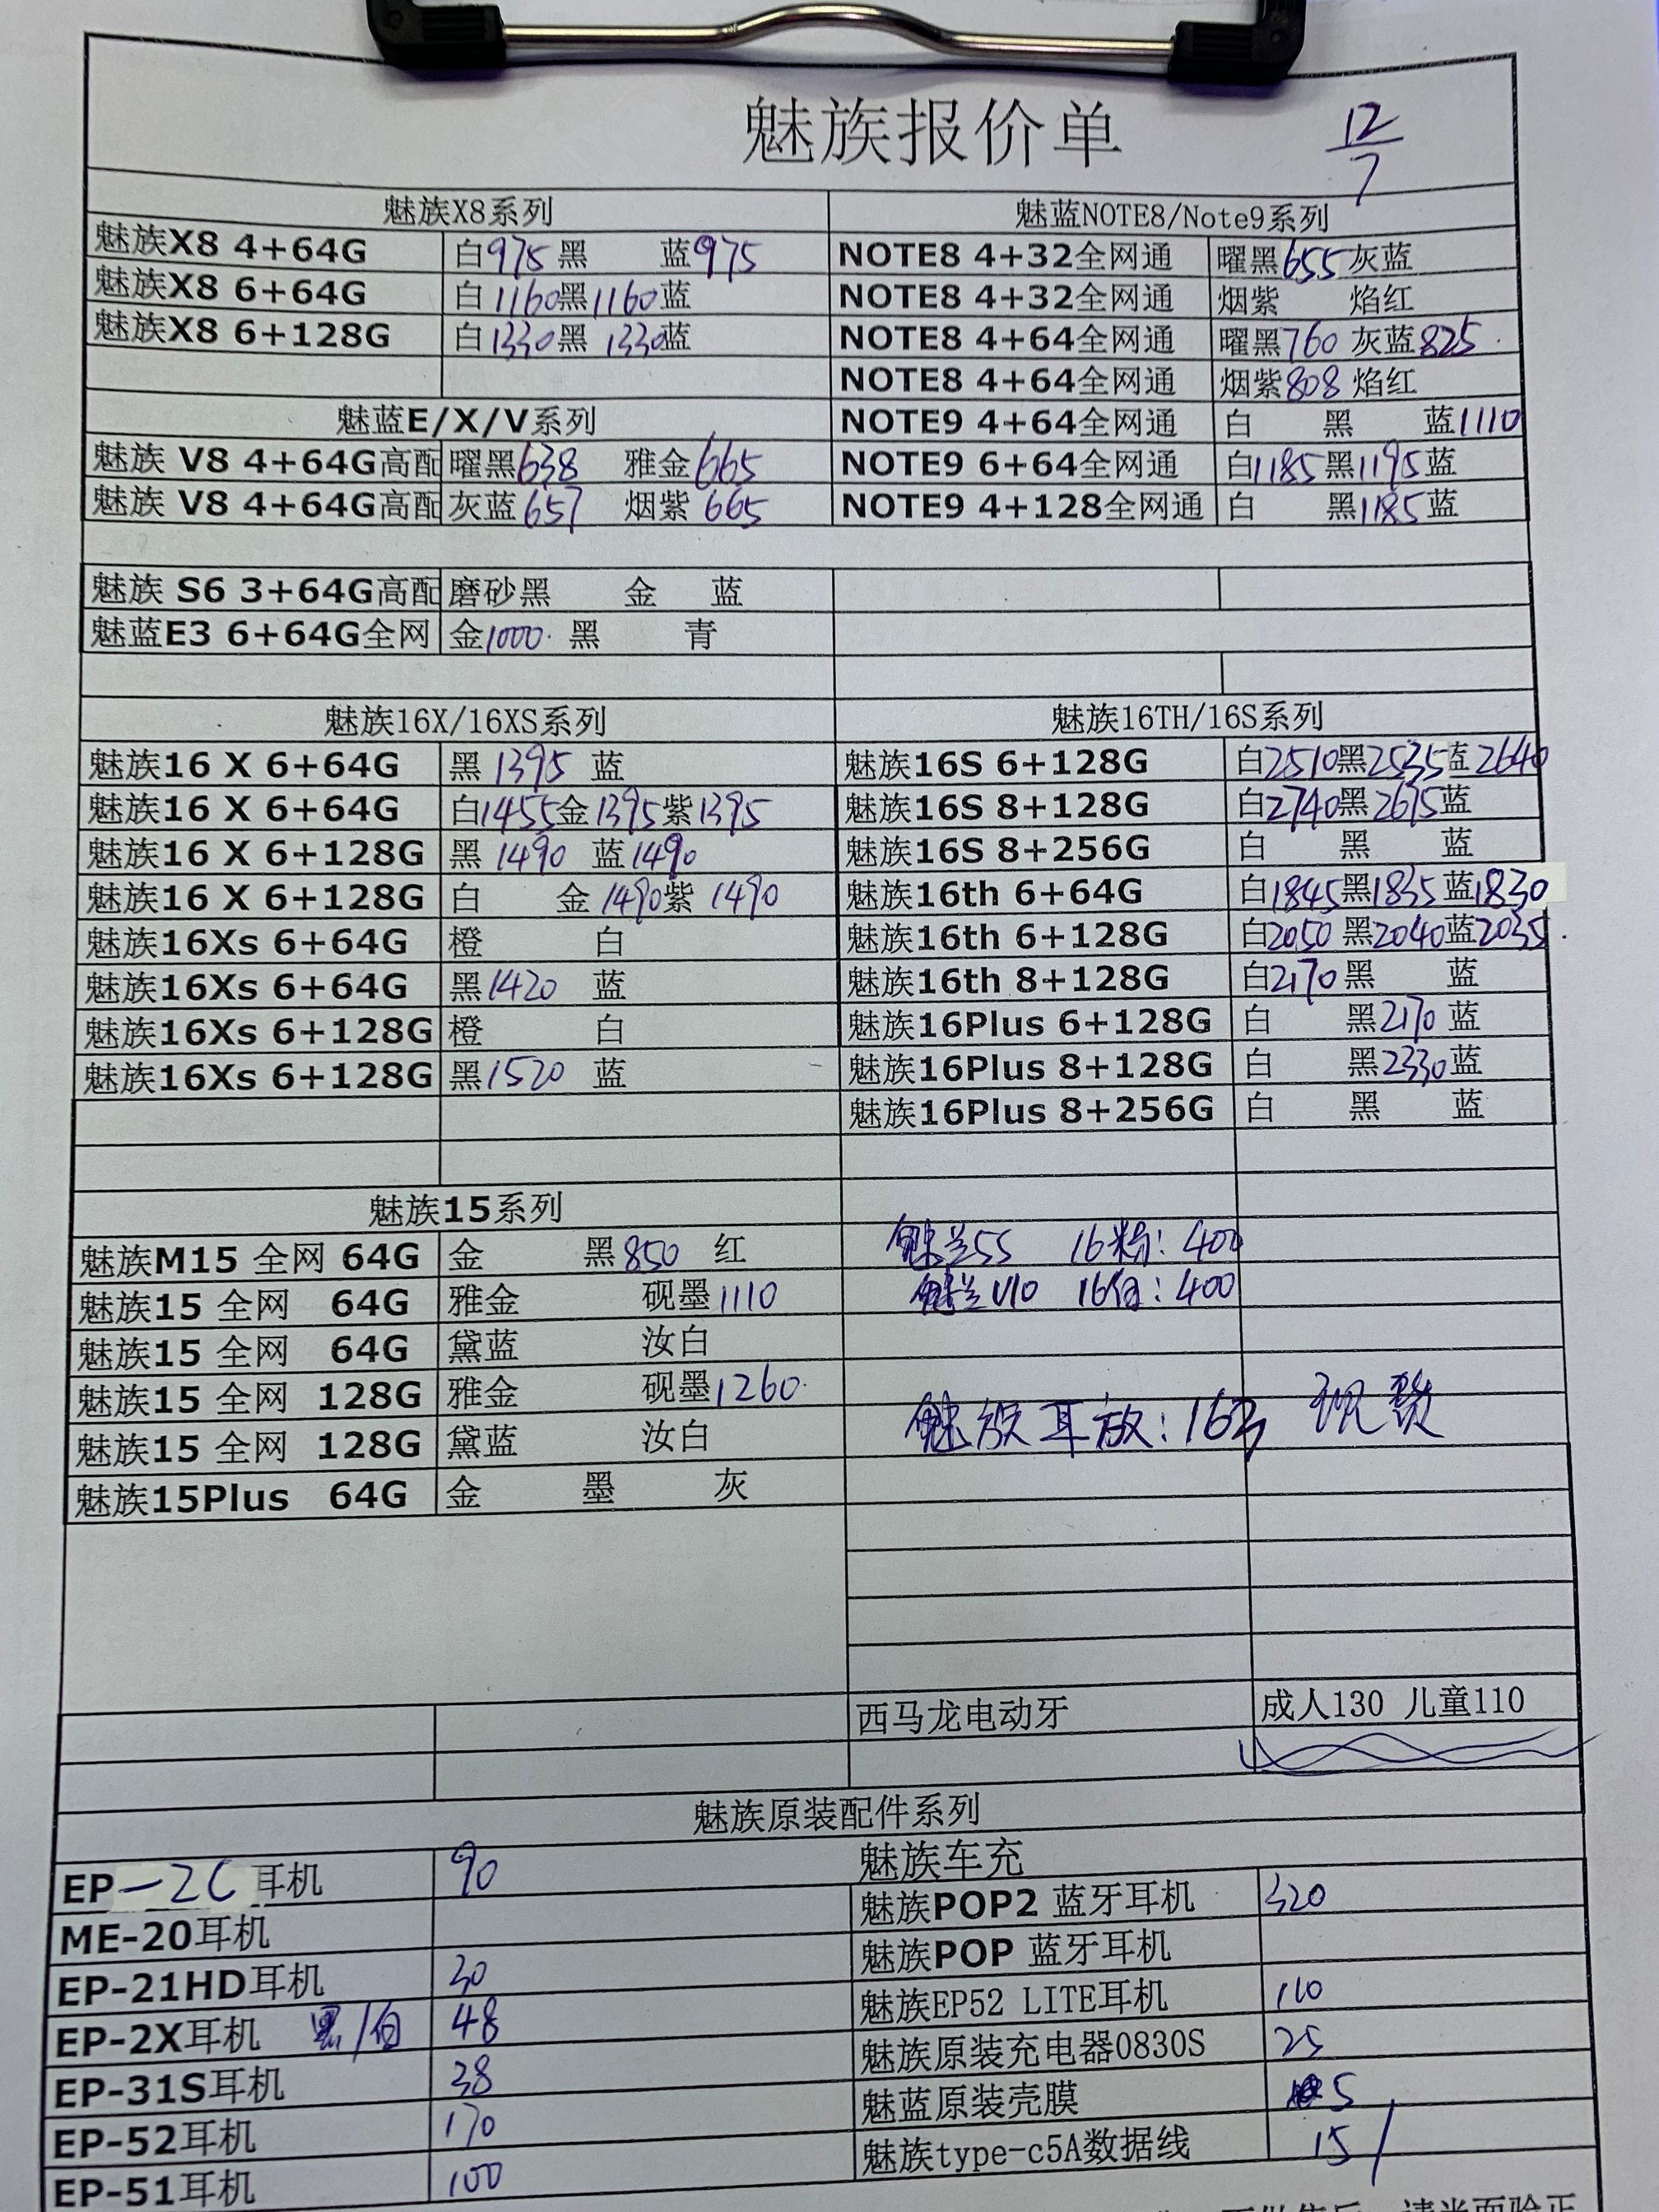 魅族报价单 12/7
魅族X8系列
魅族X8 4+64G 白975 黑 蓝975
魅族X8 6+64G 白1160 黑1160 蓝
魅族X8 6+128G 白1330 黑1330 蓝
魅蓝E/X/V系列
魅族 V8 4+64G高配 曜黑638 雅金665
魅族 V8 4+64G高配 灰蓝657 烟紫665
魅族 S6 3+64G高配 磨砂黑 金 蓝
魅蓝E3 6+64G全网 金1000 黑 青
魅蓝NOTE8/Note9系列
NOTE8 4+32全网通 曜黑655 灰蓝
NOTE8 4+32全网通 烟紫 焰红
NOTE8 4+64全网通 曜黑760 灰蓝825
NOTE8 4+64全网通 烟紫808 焰红
NOTE9 4+64全网通 白 黑 蓝1110
NOTE9 6+64全网通 白1185 黑1195 蓝
NOTE9 4+128全网通 白 黑1185 蓝
魅族16X/16XS系列
魅族16 X 6+64G 黑 1395 蓝
魅族16 X 6+64G 白1455 金1395 紫1395
魅族16 X 6+128G 黑 1490 蓝1490
魅族16 X 6+128G 白 金1490 紫1490
魅族16Xs 6+64G 橙 白
魅族16Xs 6+64G 黑1420 蓝
魅族16Xs 6+128G 橙 白
魅族16Xs 6+128G 黑1520 蓝
魅族16TH/16S系列
魅族16S 6+128G 白2510 黑2535 蓝2640
魅族16S 8+128G 白2740 黑2675 蓝
魅族16S 8+256G 白 黑 蓝
魅族16th 6+64G 白1845 黑1835 蓝1830
魅族16th 6+128G 白2050 黑2040 蓝2035
魅族16th 8+128G 白2170 黑 蓝
魅族16Plus 6+128G 白 黑2170 蓝
魅族16Plus 8+128G 白 黑2330 蓝
魅族16Plus 8+256G 白 黑 蓝
魅族15系列
魅族M15 全网 64G 金 黑850 红
魅族15 全网 64G 雅金 砚墨1110
魅族15 全网 64G 黛蓝 汝白
魅族15 全网 128G 雅金 砚墨1260
魅族15 全网 128G 黛蓝 汝白
魅族15Plus 64G 金 墨 灰
魅兰5S 16粉: 400
魅兰U10 16白: 400
魅族耳放: 163 现货
西马龙电动牙 成人130 儿童110
魅族原装配件系列
EP-2C耳机 90
ME-20耳机
EP-21HD耳机 30
EP-2X耳机 黑/白 48
EP-31S耳机 38
EP-52耳机 170
EP-51耳机 100
魅族车充
魅族POP2 蓝牙耳机 320
魅族POP 蓝牙耳机
魅族EP52 LITE耳机 110
魅族原装充电器0830S 25
魅蓝原装壳膜 5
魅族type-c5A数据线 15/